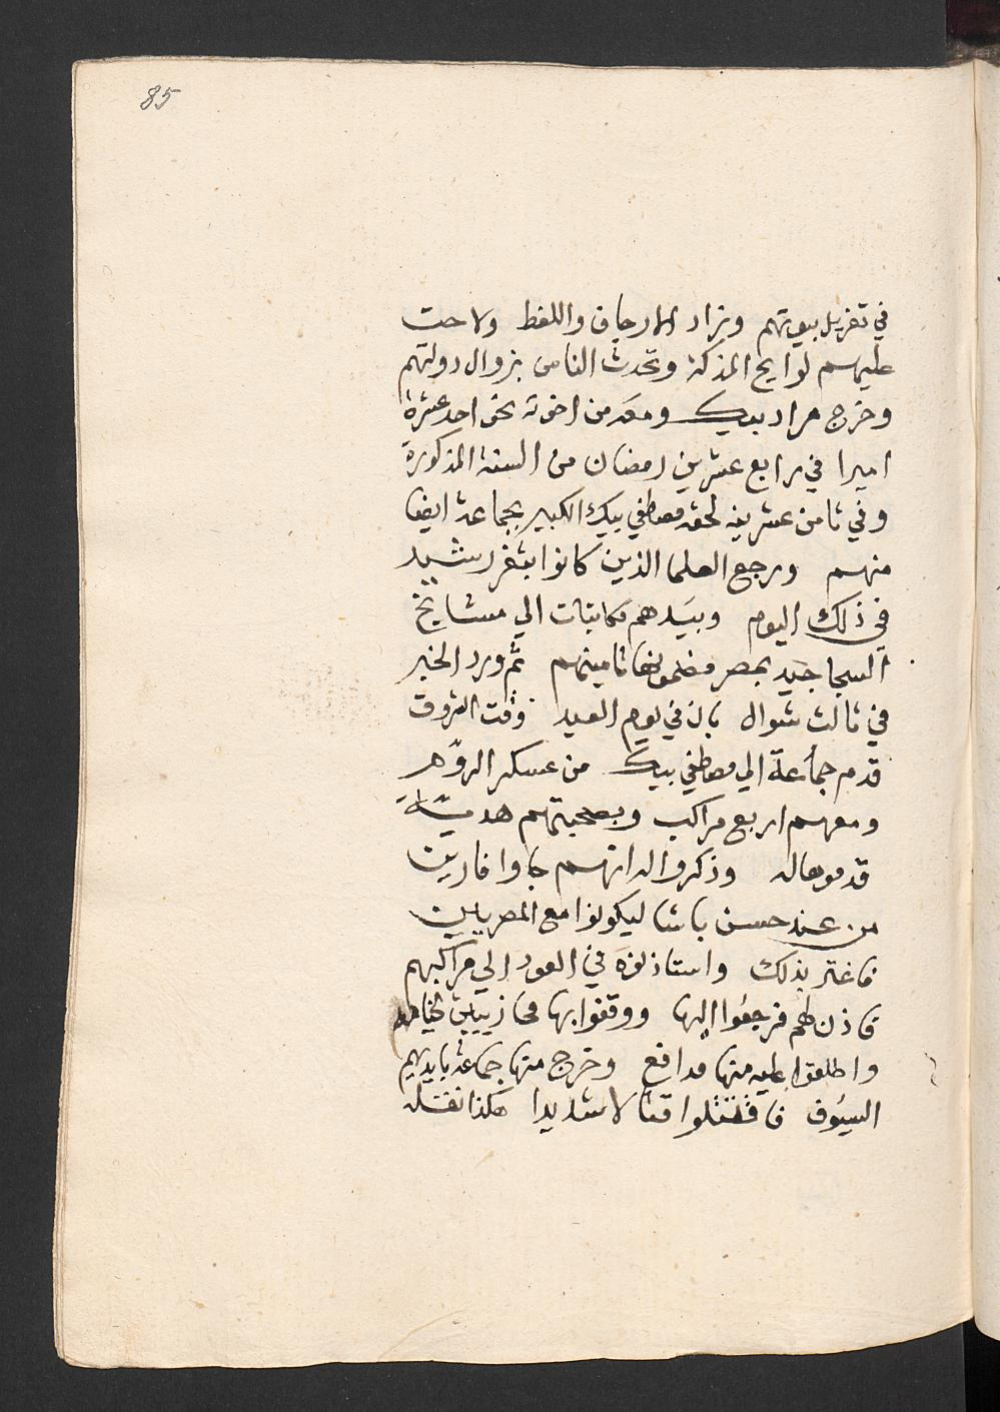 85
في تعزيل بيوتهم وزاد الارجاف واللغط ولاحت
عليهم لوايح المذلة وتحدث الناس بزوال دولتهم
وخرج مراد بيك ومعه من اخوته نحو احد عشرة
اميرا في رابع عشرين رمضان من السنة المذكورة
وفي ثامن عشرينه لحقه مصطفي بيك الكبير بجماعة ايضا
منهم ورجع العلما الذين كانوا بثغر رشيد
في ذلك اليوم وبيدهم مكاتبات الي مشايخ
السجاجيد بمصر مضمونها تامينهم ثم ورد الخبر
في ثالث شوال بان في يوم العيد وقت الشروق
قدم جماعة الي مصطفي بيك من عسكر الروم
ومعهم اربع مراكب وبصحبتهم هدية
قدموها له وذكروا له انهم جاوا فارين
من عند حسن باشا ليكونوا مع المصريين
فاغتر بذلك واستاذنوه في العود الي مراكبهم
فاذن لهم فرجعوا اليها ووقفوا بها محازيين لخيامه
واطلقوا عليه منها مدافع وخرج منها جماعة بايديهم
السيوف فاقتتلوا قتالا شديدا هكذا نقله